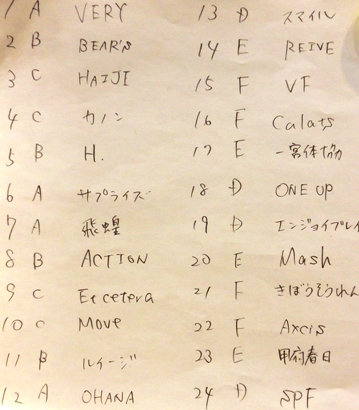 1 A VERY
2 B BEAR'S
3 C HAIJI
4 C カノン
5 B H.
6 A サプライズ
7 A 飛蝗
8 B ACTION
9 C Et cetera
10 C Move
11 B ルイージ
12 A OHANA
13 D スマイル
14 E REIVE
15 F VF
16 F Calats
17 E 一宮体协
18 D ONE UP
19 D エンジョイプレイ
20 E Mash
21 F きぼうそうれん
22 F Axcis
23 E 甲府春日
24 D SPF